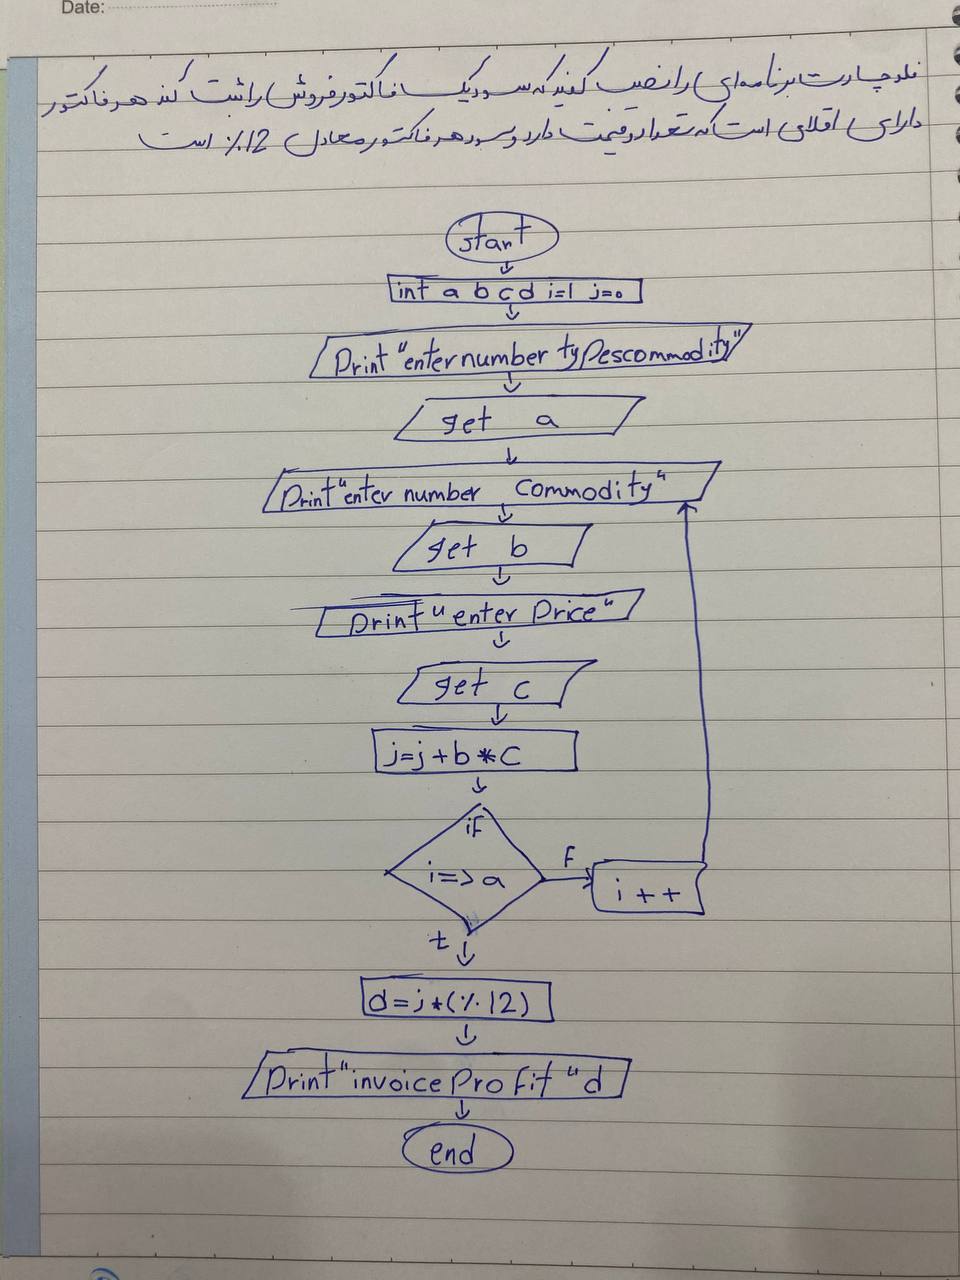 Date:
فلوچارت برنامه‌ای را نصب کنید که سود یک فاکتور فروش را ثبت کند هر فاکتور
دارای اقلامی است که تعداد و قیمت دارد و سود هر فاکتور معادل 12٪ است
start
int a b c d i=1 j=0
Print "enter number typescommodity"
get a
Print "enter number commodity"
get b
print "enter Price"
get c
j=j+b*c
if
i=>a
F
i++
t
d=j*(٪12)
Print "invoice Profit" d
end